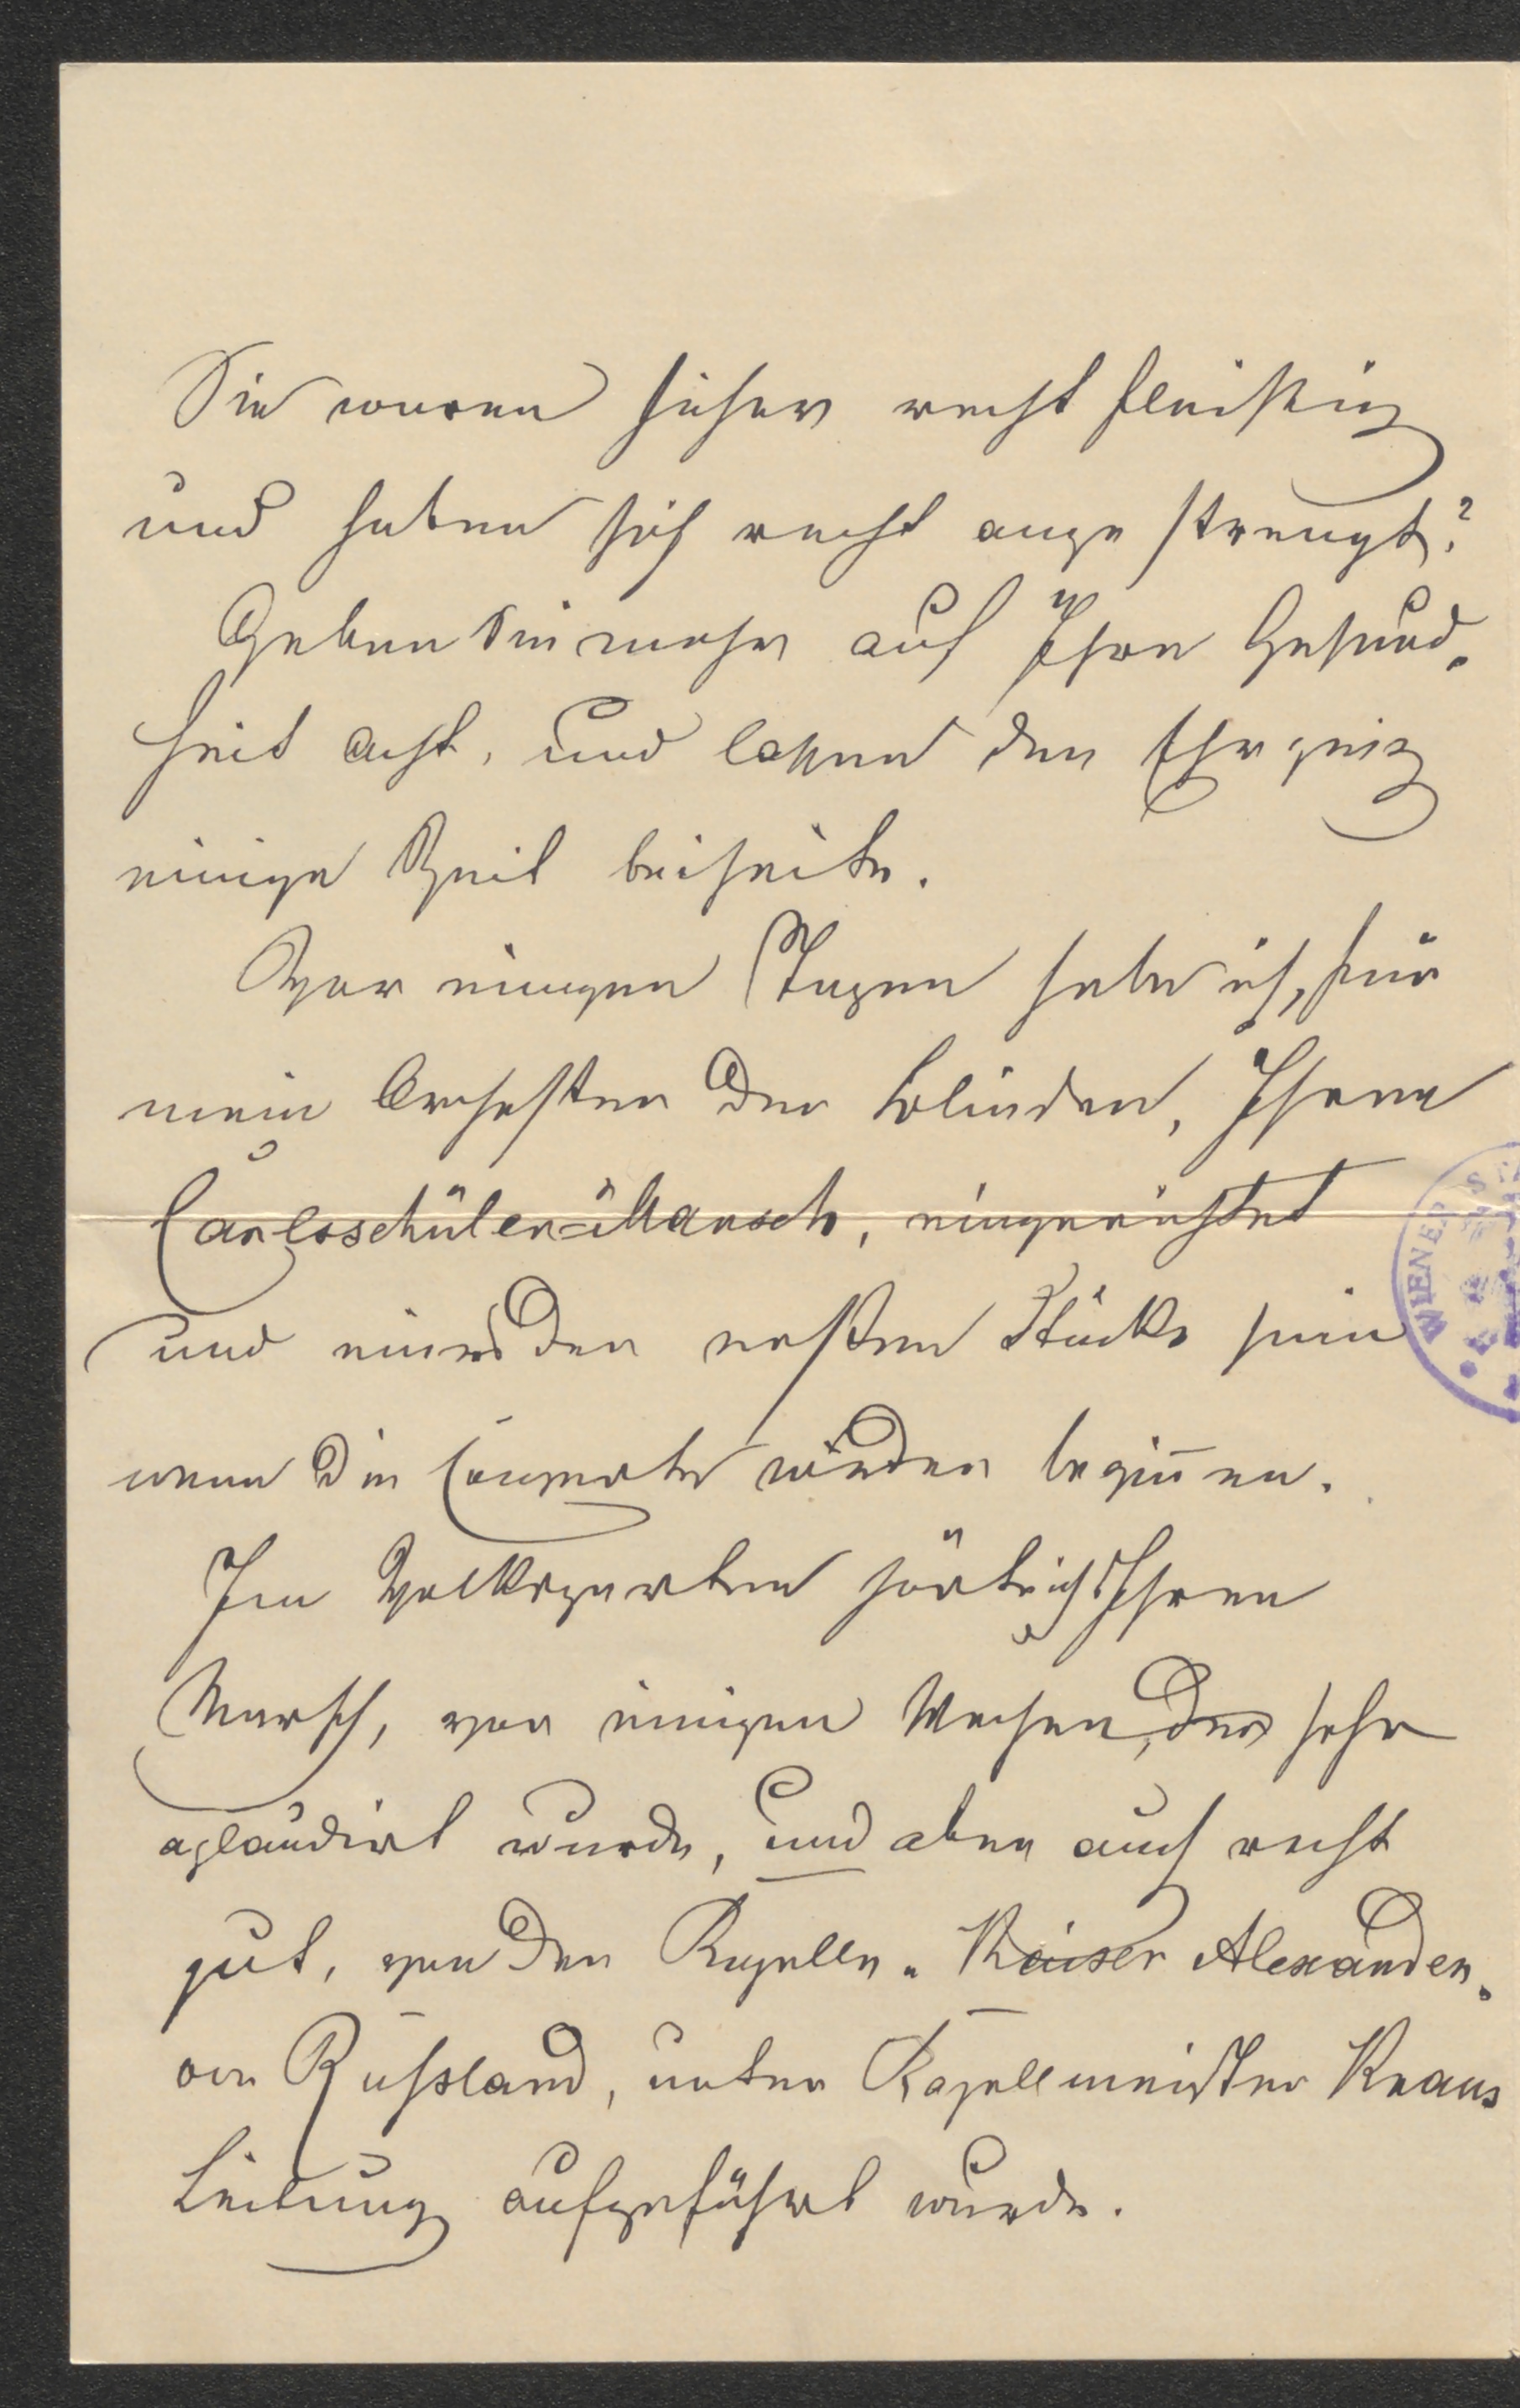 Sie waren sicher recht fleißig
und haben sich recht ange strengt?
Geben Sie mehr auf Ihre Gesund-
heit acht, und lassen den Ehrgeiz
einige Zeit beiseite.
Vor einigen Tagen habe ich, für
mein Orchester der Blinden, Ihren
Carlsschüler=Marsch, eingerichtet
und eines der ersten Stücke sein
wenn die Conzerte wieder begiñen.
Im Volksgarten hörte ich Ihren
Marsch, vor einigen Wochen, der sehr
aplaudirt wurde, und aber auch recht
gut, von der Kapelle „Kaiser Alexander
von Rußland, unter Kapellmeister Kraus
Leitung aufgeführt wurde.
WIENER